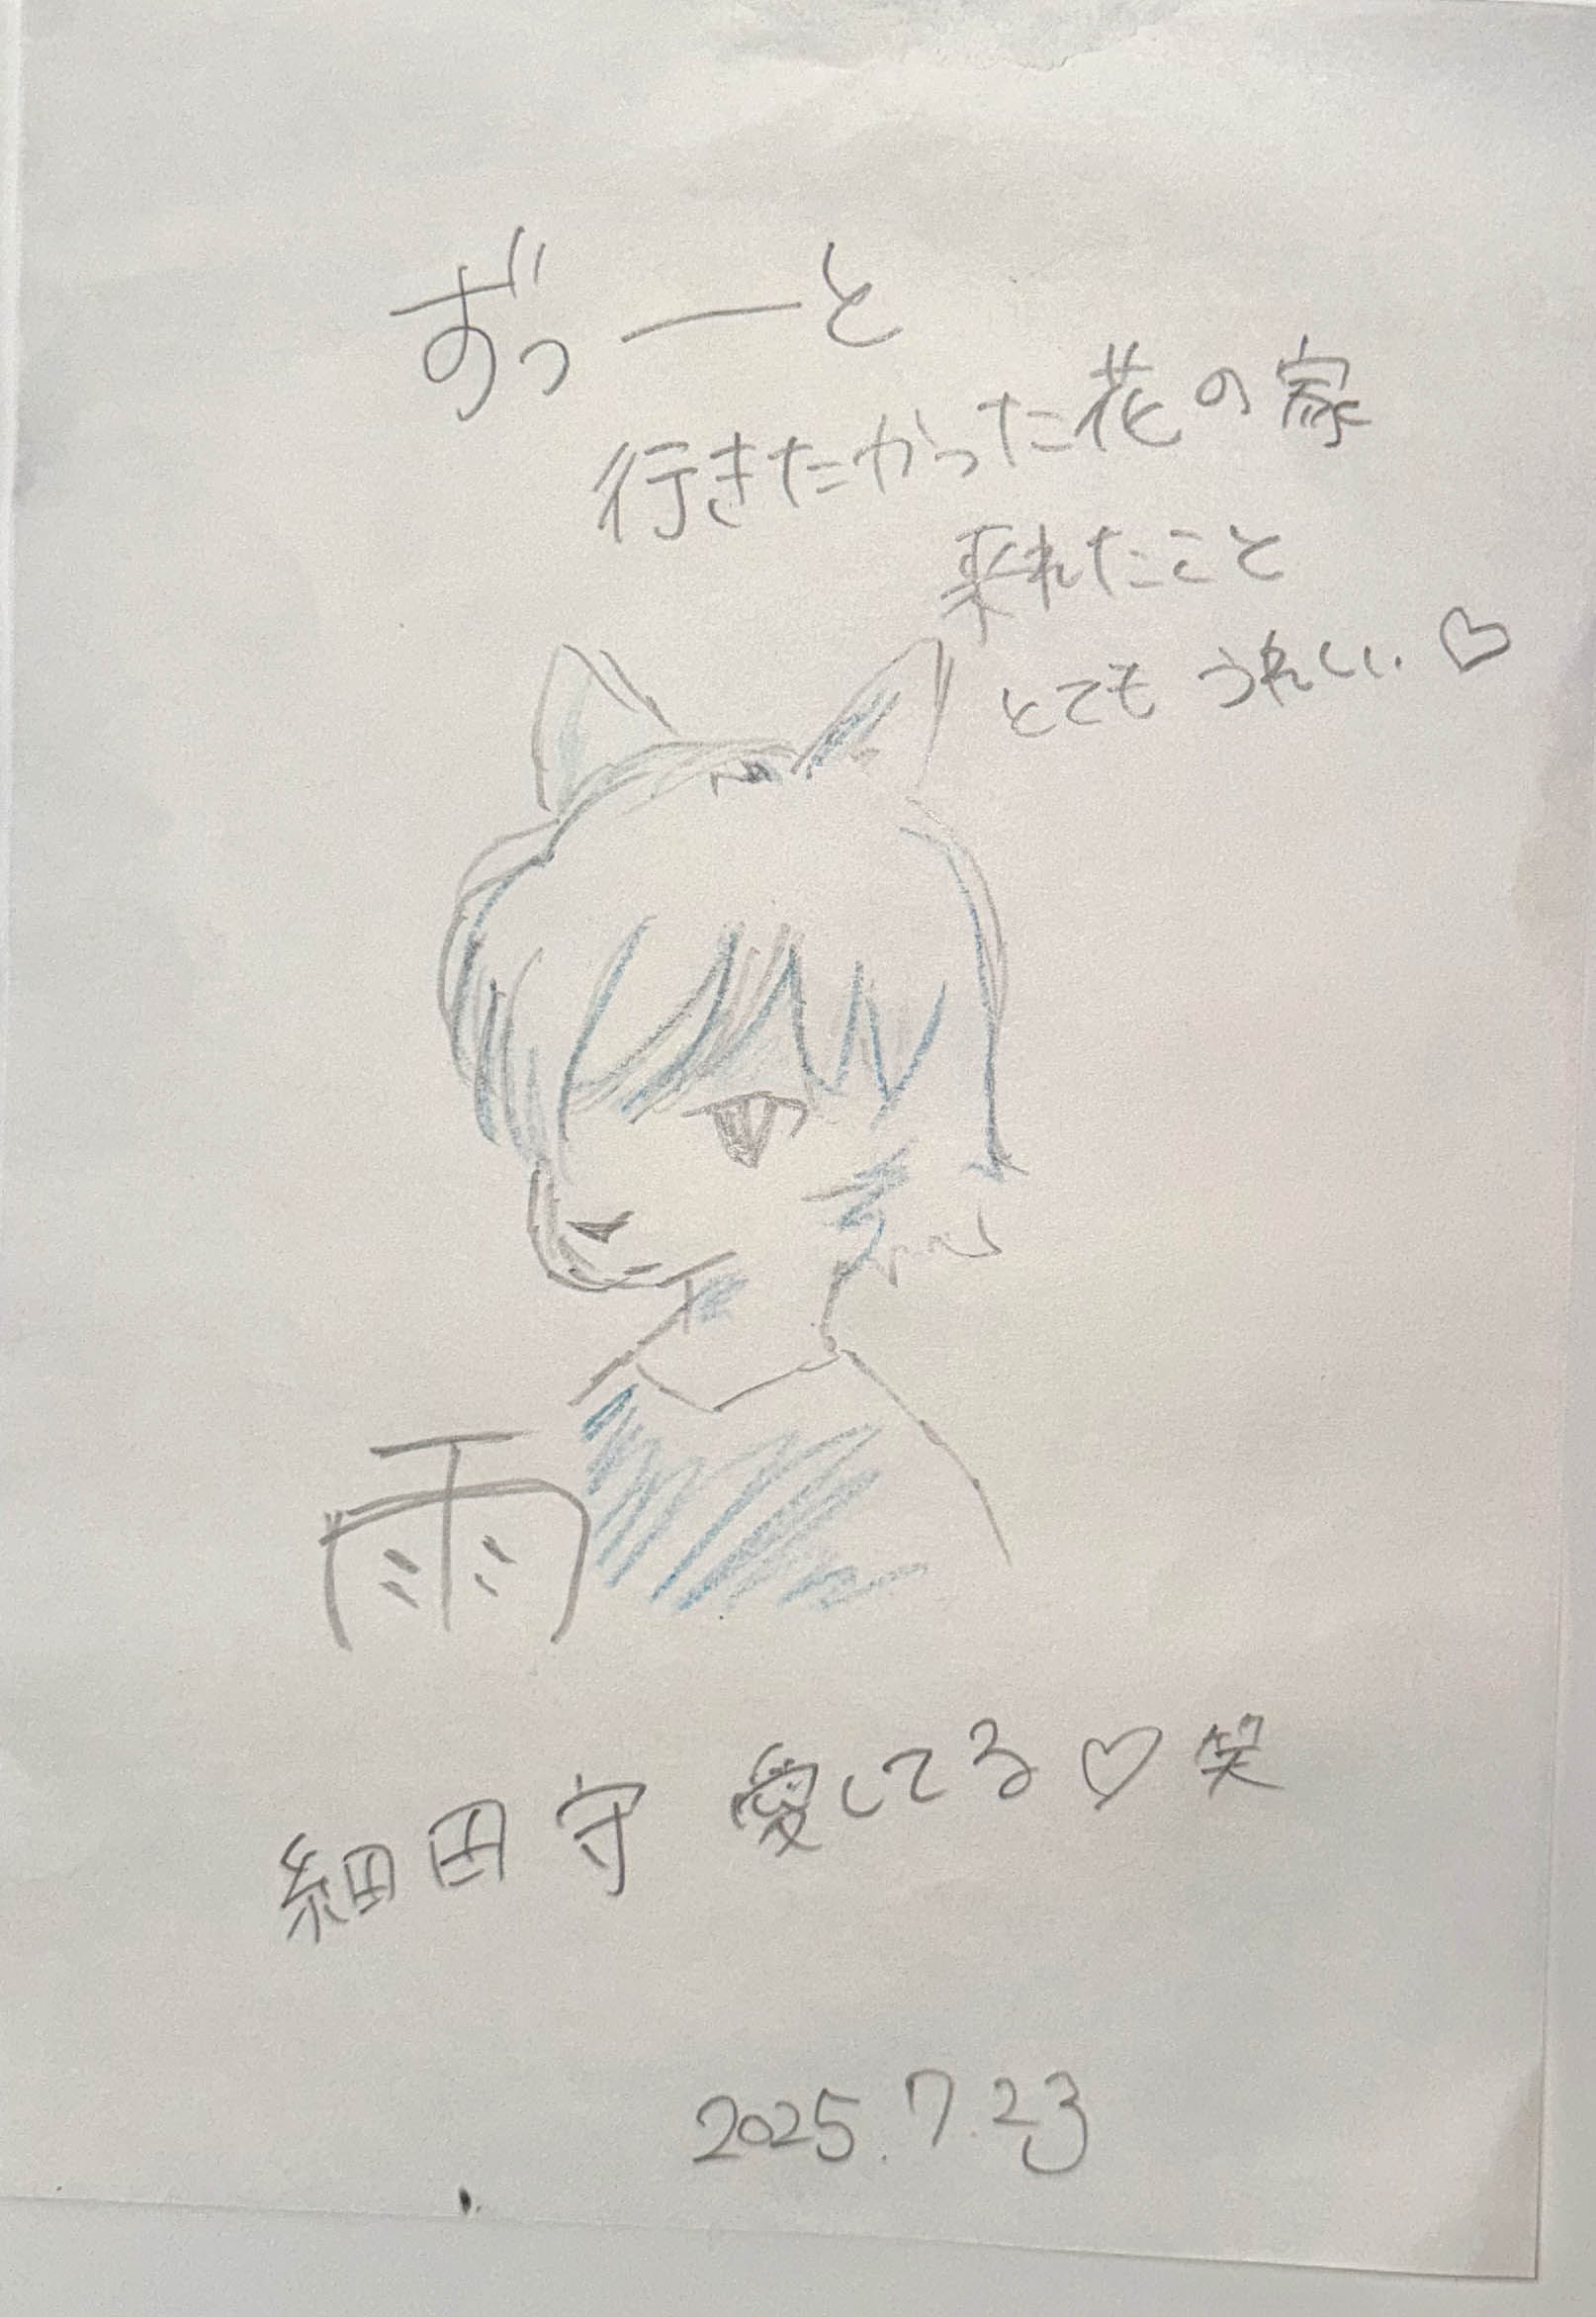 ずっーと
行きたかった花の家
来れたこと
とても うれしい。♡
雨
細田守 愛してる♡笑
2025.7.23